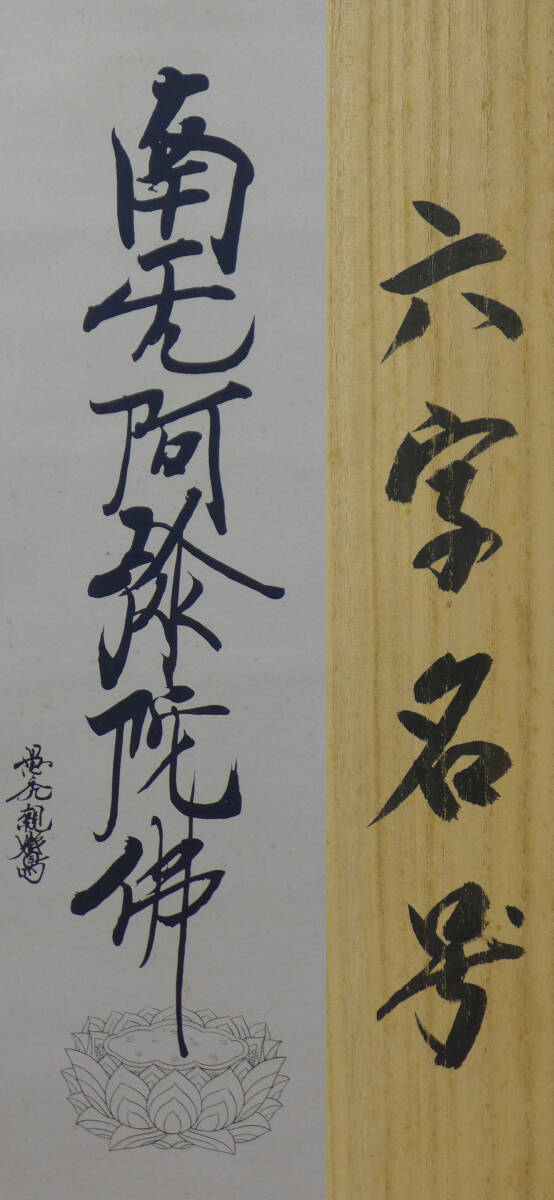 六字名号
南无阿弥陀佛
愚禿親鸞